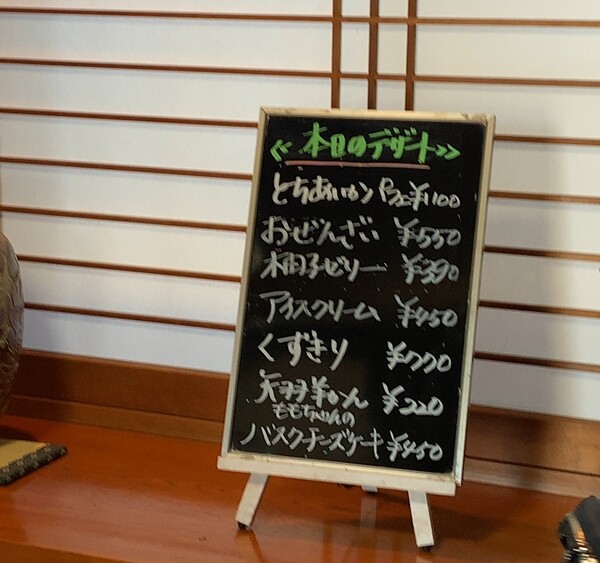 << 本日のデザート >>
とちあいかパフェ ¥1100
おぜんざい ¥550
柚子ゼリー ¥390
アイスクリーム ¥450
くずきり ¥770
矢羽羊かん ¥220
ももちゃんの
バスクチーズケーキ ¥450